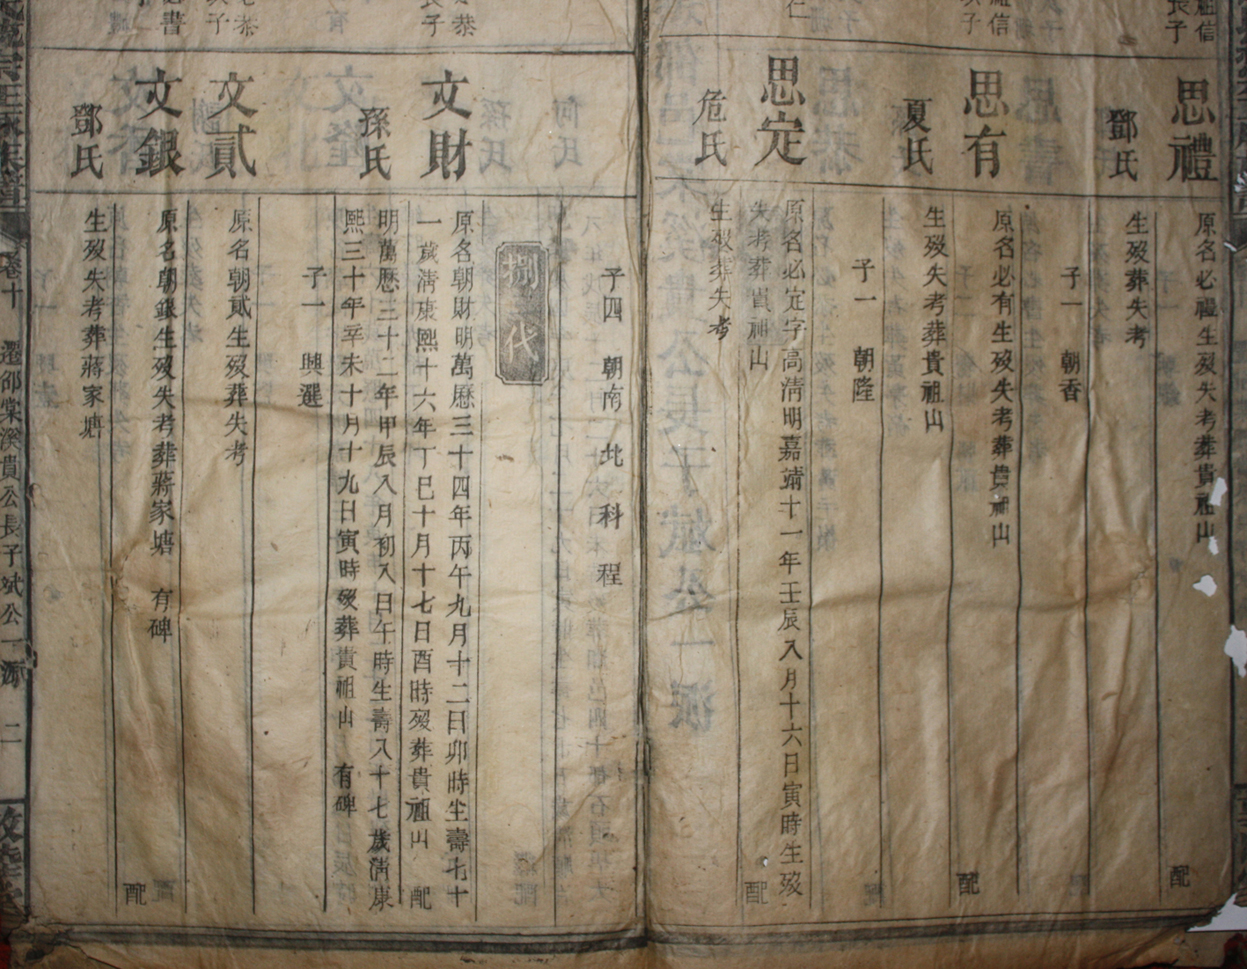 思禮
原名必禮生歿失考葬貴祖山
配
鄧氏
生歿葬失考
子一 朝香
思有
原名必有生歿失考葬貴祖山
配
夏氏
生歿失考葬貴祖山
子一 朝隆
思定
原名必定字高淸明嘉靖十一年壬辰八月十六日寅時生歿
失考葬貴祖山
配
危氏
生歿葬失考
子四 朝南 北 科 程
捌代
文財
原名朝財明萬歷三十四年丙午九月十二日卯時生壽七十
一歲淸康熙十六年丁巳十月十七日酉時歿葬貴祖山 配
孫氏
明萬歷三十二年甲辰八月初八日午時生壽八十七歲淸康
熙三十年辛未十月十九日寅時歿葬貴祖山 有碑
子一 興選
文貳
原名朝貳生歿葬失考
文銀
原名朝銀生歿失考葬蔣家塘 有碑
配
鄧氏
生歿失考葬蔣家塘
卷十 遷邵棠溪貴公長子斌公一派 二